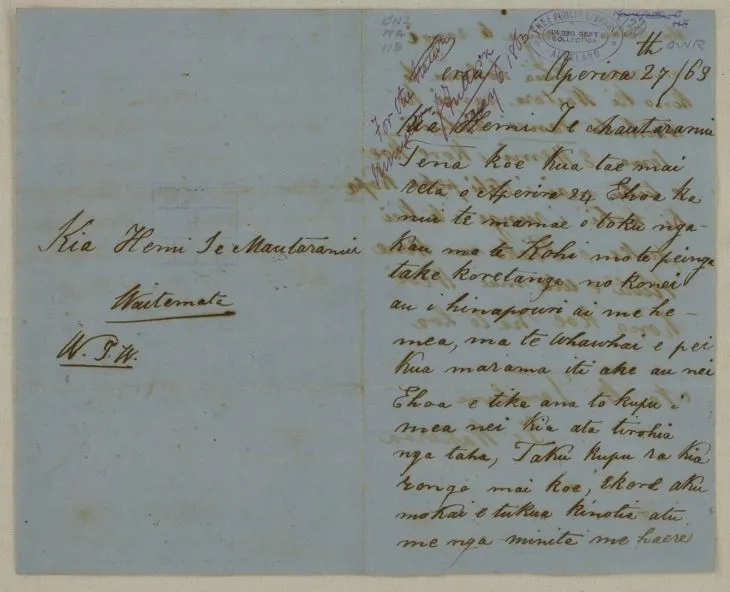 Kia Hemi Te Mautaranui
Waitemata
W. T. W.
GNZ
MA
118
FREE PUBLIC LIBRARY
SIR GEO GREY'S
COLLECTION
AUCKLAND
OWR
For the
1863
Aperira 27th/63
Kia Hemi Te Mautaranui
Tena koe kua tae mai
reta o Aperira 24 Ehoa ka
nui te mamae o toku nga-
kau mo te Kohi mo te peinga
take koretanga no konei
au i hinapouri ai me he-
mea, ma te whawhai e pei
kua marama iti ake au nei
Ehoa e tika ana to kupu i
mea nei kia ata tirohia
nga taha, Taku kupu ra kia
rongo mai koe, Ekore aku
mokai e tukua kinotia atu
me nga minita me haere